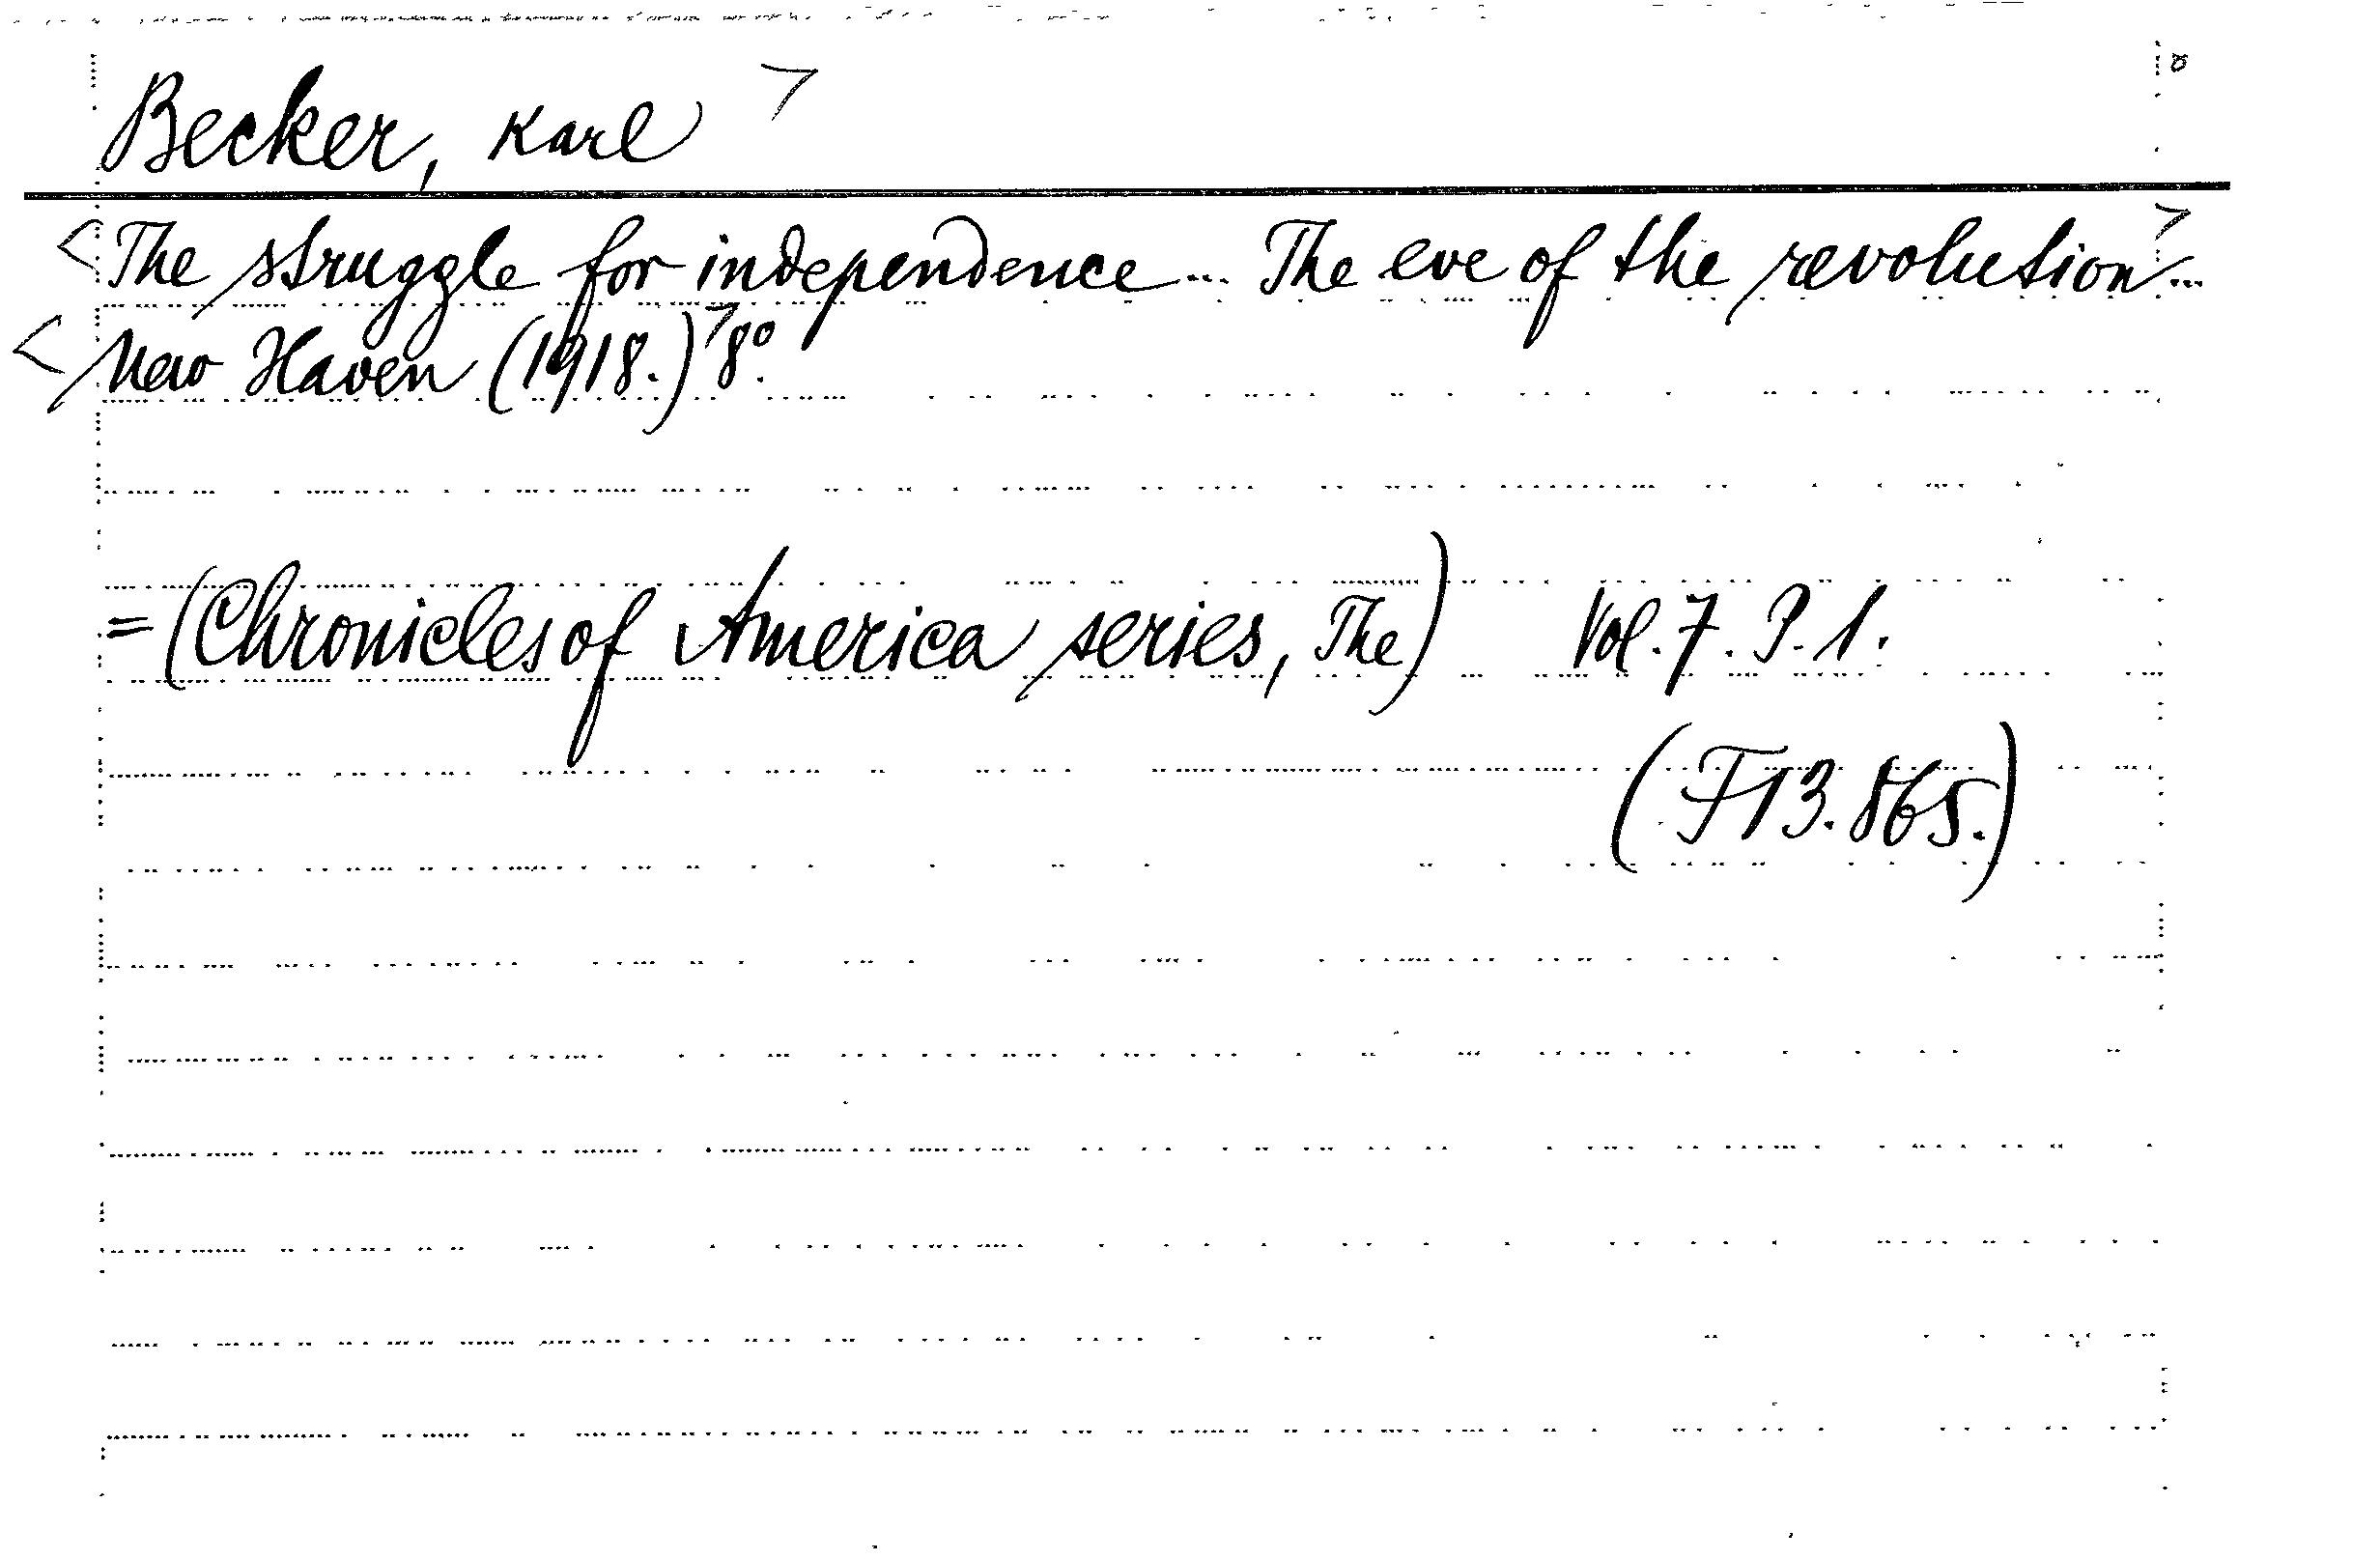 Becker, Karl >
<The struggle for independence... The eve of the revolution>...
<New Haven (1918.)> 8°.
=(Chronicles of America series, The) Vol. 7. P. 1.
(F13.865.)